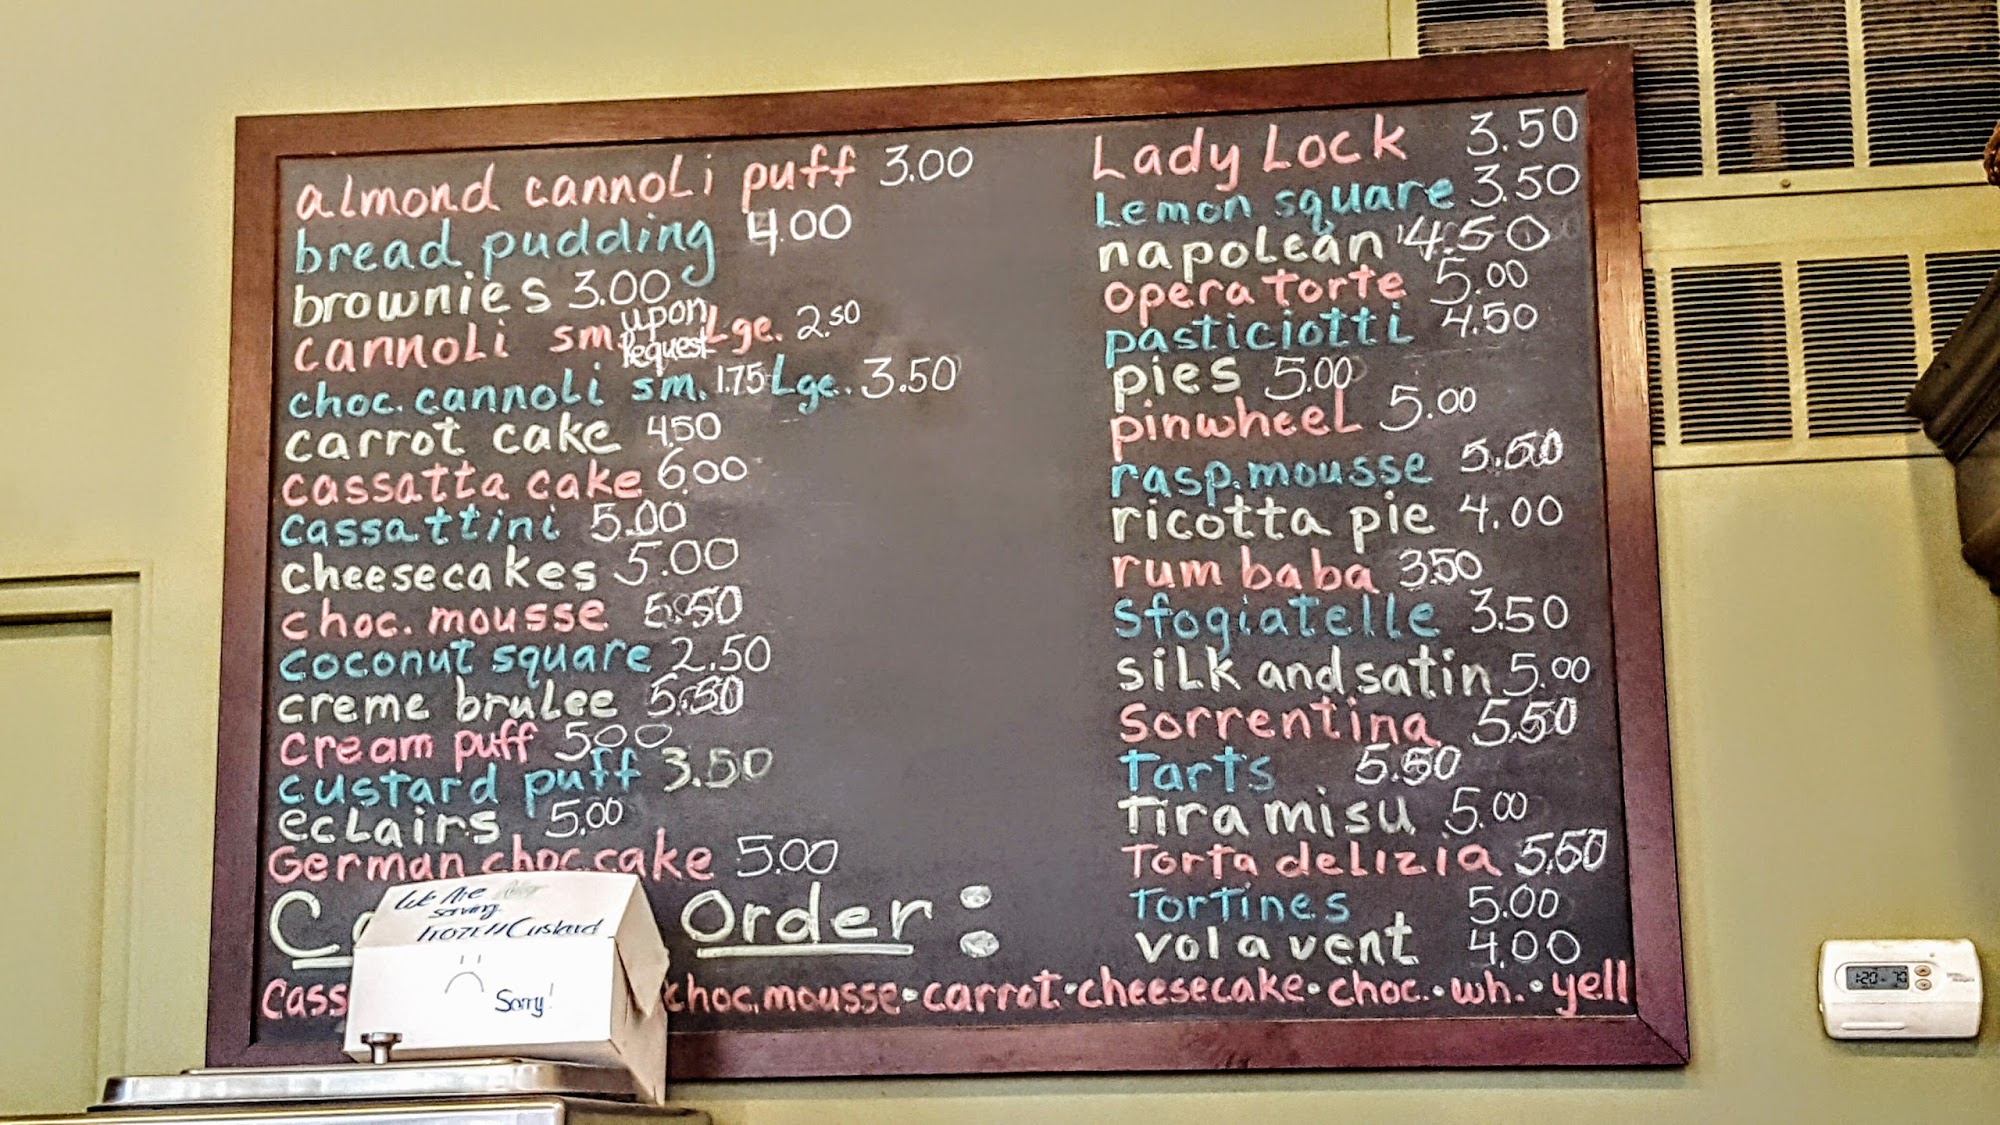 almond cannoli puff 3.00
bread pudding 4.00
brownies 3.00
cannoli sm. upon request Lge. 2.50
choc. cannoli sm. 1.75 Lge. 3.50
carrot cake 4.50
cassatta cake 6.00
cassattini 5.00
cheesecakes 5.00
choc. mousse 5.50
coconut square 2.50
creme brulee 5.50
cream puff 5.00
custard puff 3.50
eclairs 5.00
German choc. cake 5.00
Order:
Cass
choc. mousse • carrot • cheesecake • choc. • wh. • yell
Lady Lock 3.50
Lemon square 3.50
napolean 4.50
opera torte 5.00
pasticiotti 4.50
pies 5.00
pinwheel 5.00
rasp. mousse 5.50
ricotta pie 4.00
rum baba 3.50
sfogiatelle 3.50
silk and satin 5.00
sorrentina 5.50
Tarts 5.50
Tiramisu 5.00
Torta delizia 5.50
Tortines 5.00
vol a vent 4.00
We Are
serving
FROZEN Custard
Sorry!
1:20 70